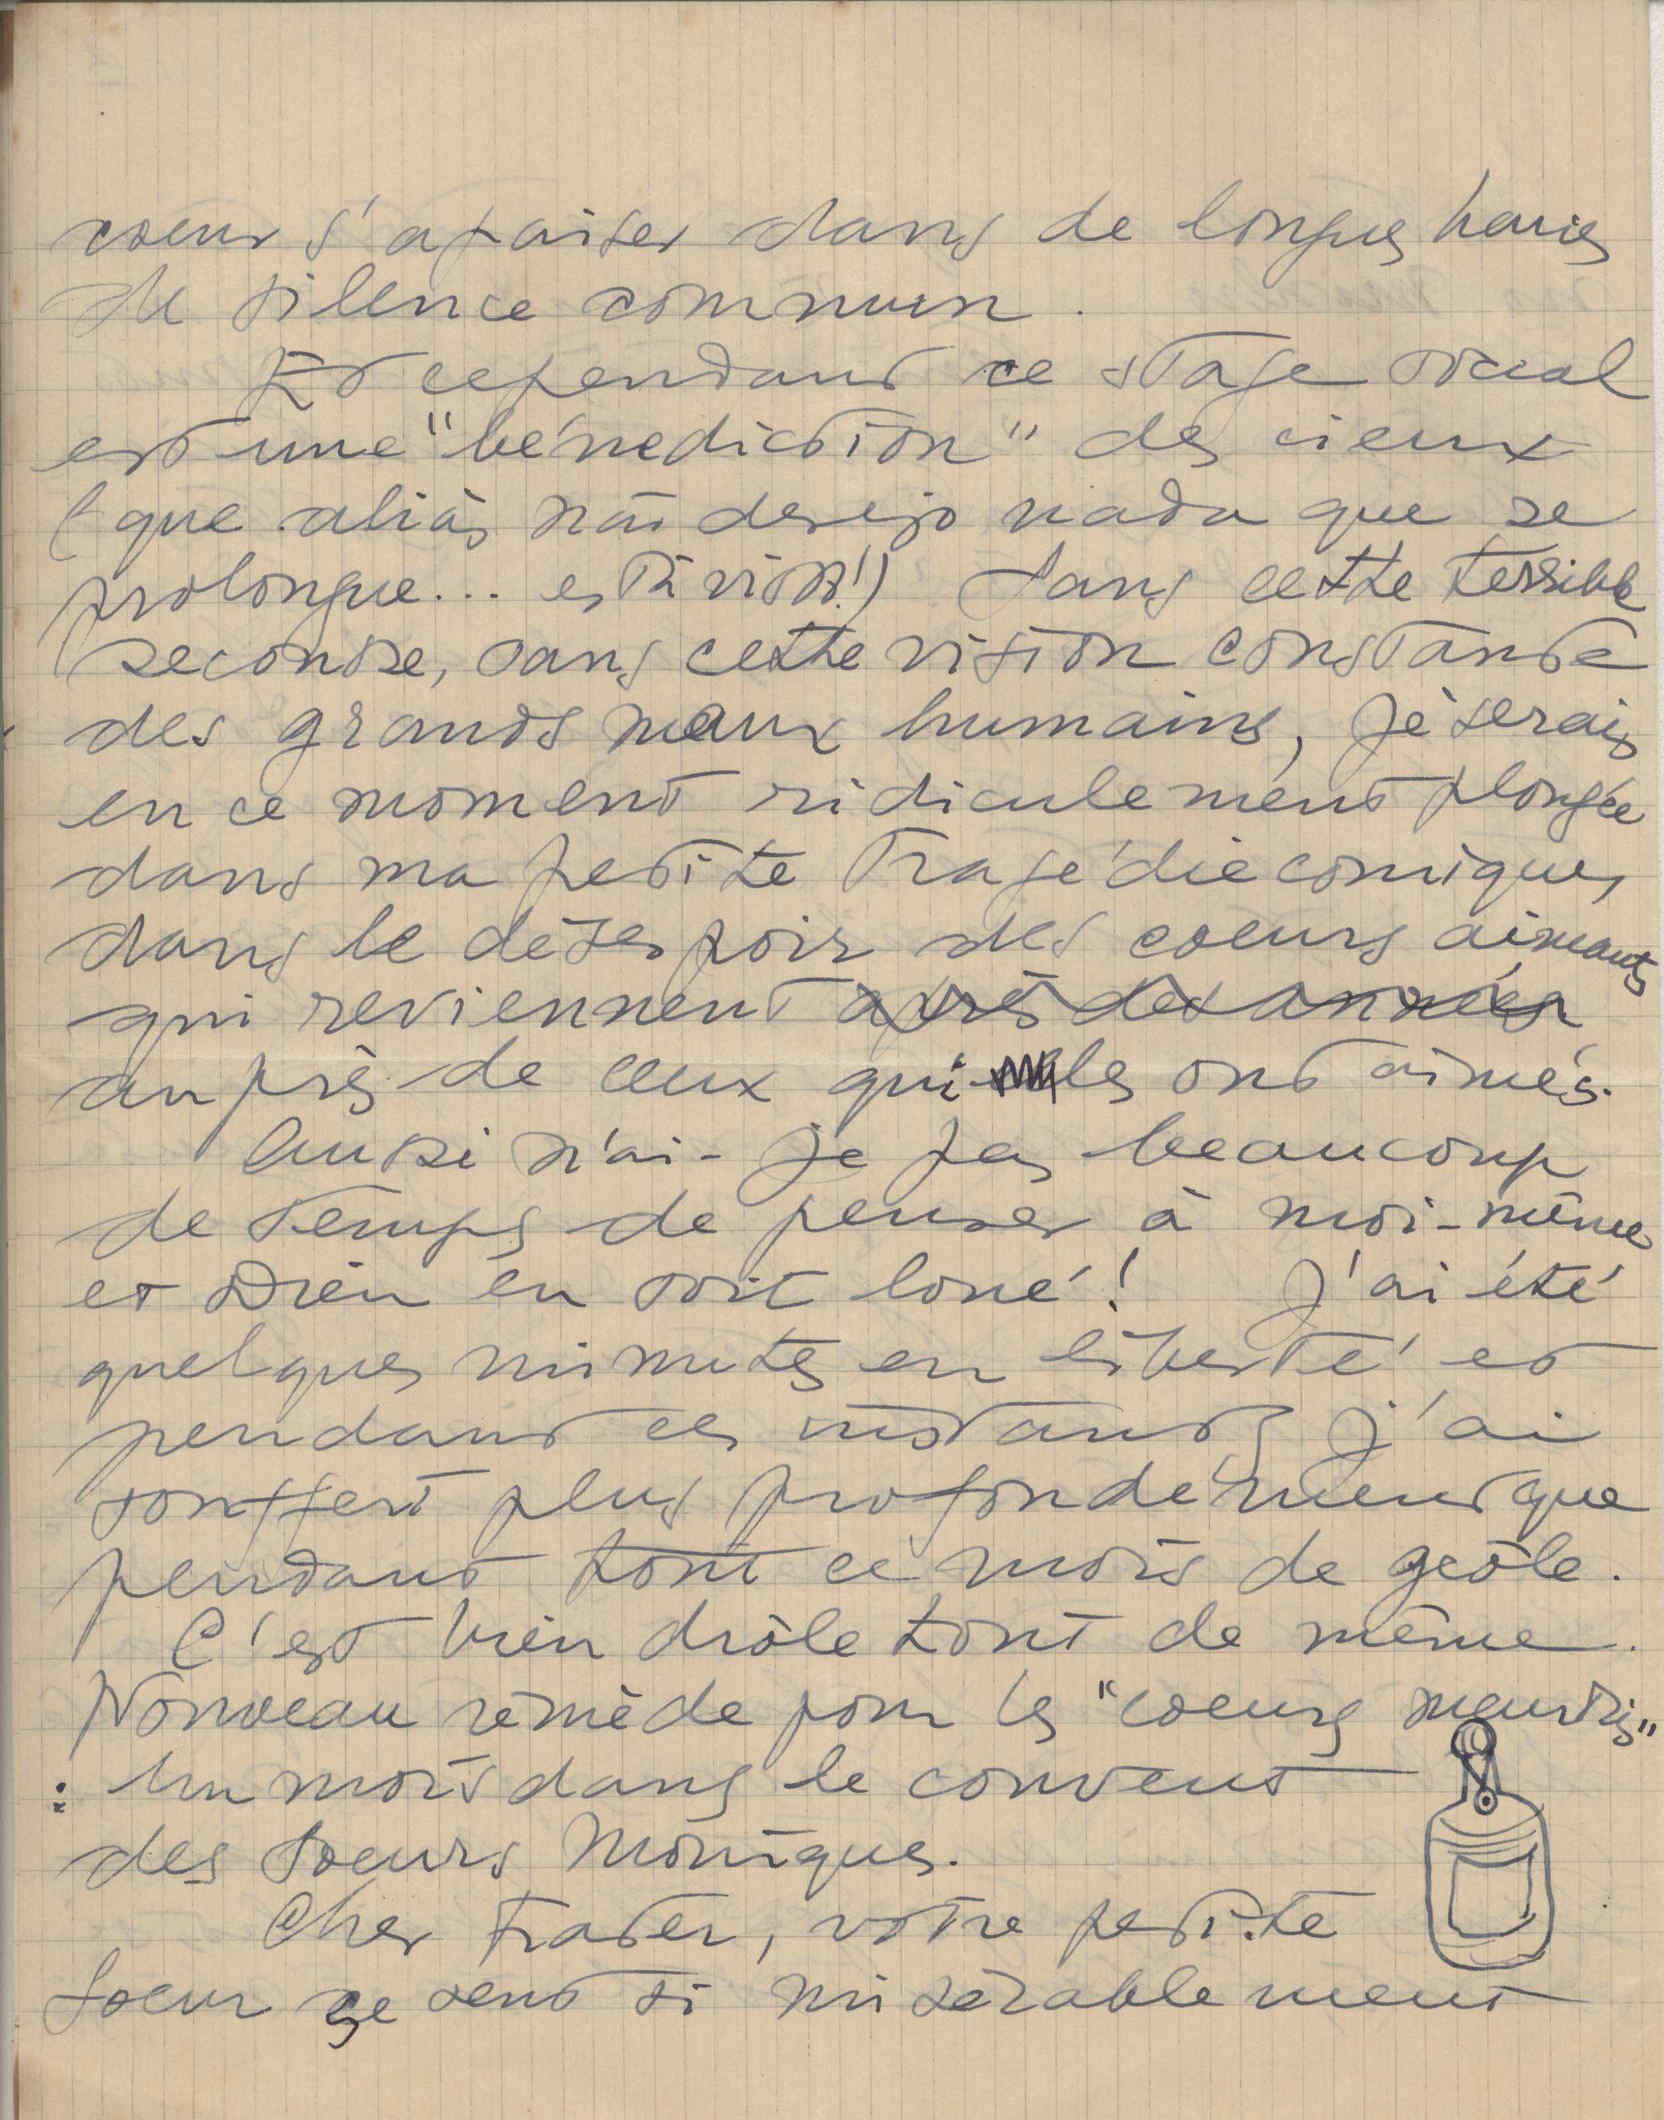 coeur s'apaiser dans de longues heures
de silence commun.
Et cependant ce stage social
est une "bénédiction" des cieux
(que aliàs não desejo nada que se
prolongue... está visto!) Sans cette terrible
secousse, sans cette vision constante
des grands maux humains, je serais
en ce moment ridiculement plongée
dans ma petite tragédie comique,
dans le désespoir des coeurs aimants
qui reviennent après des années
auprès de ceux qui les ont aimés.
Aussi n'ai-je pas beaucoup
de temps de penser à moi-même
et Dieu en soit loué! J'ai été
quelques minutes en liberté et
pendant ces instants j'ai
souffert plus profondément que
pendant tout ce mois de geôle.
C'est bien drôle tout de même.
Nouveau remède pour les "coeurs meurtris"
: Un mois dans le couvent
des Soeurs Moniques.
Cher Frater, votre petite
soeur se sent si misérablement